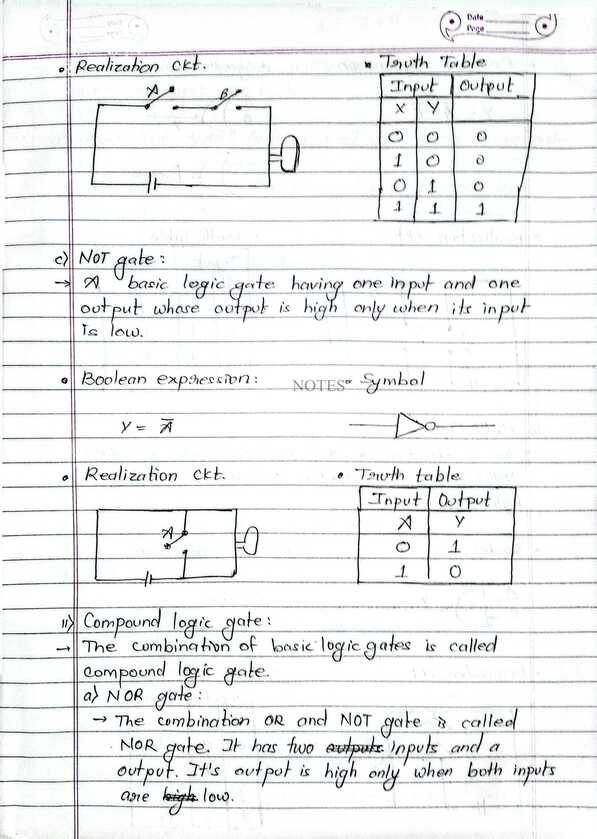 Date
Page
• Realization ckt.
• Truth Table
A B
Input Output
X Y
0 0 0
1 0 0
0 1 0
1 1 1
c) NOT gate:
→ A basic logic gate having one input and one
output whose output is high only when its input
is low.
• Boolean expression:
NOTES
• Symbol
Y = A̅
• Realization ckt.
• Truth table
A
Input Output
A Y
0 1
1 0
II) Compound logic gate:
→ The combination of basic logic gates is called
compound logic gate.
a) NOR gate:
→ The combination OR and NOT gate is called
NOR gate. It has two outputs inputs and a
output. It's output is high only when both inputs
are high low.